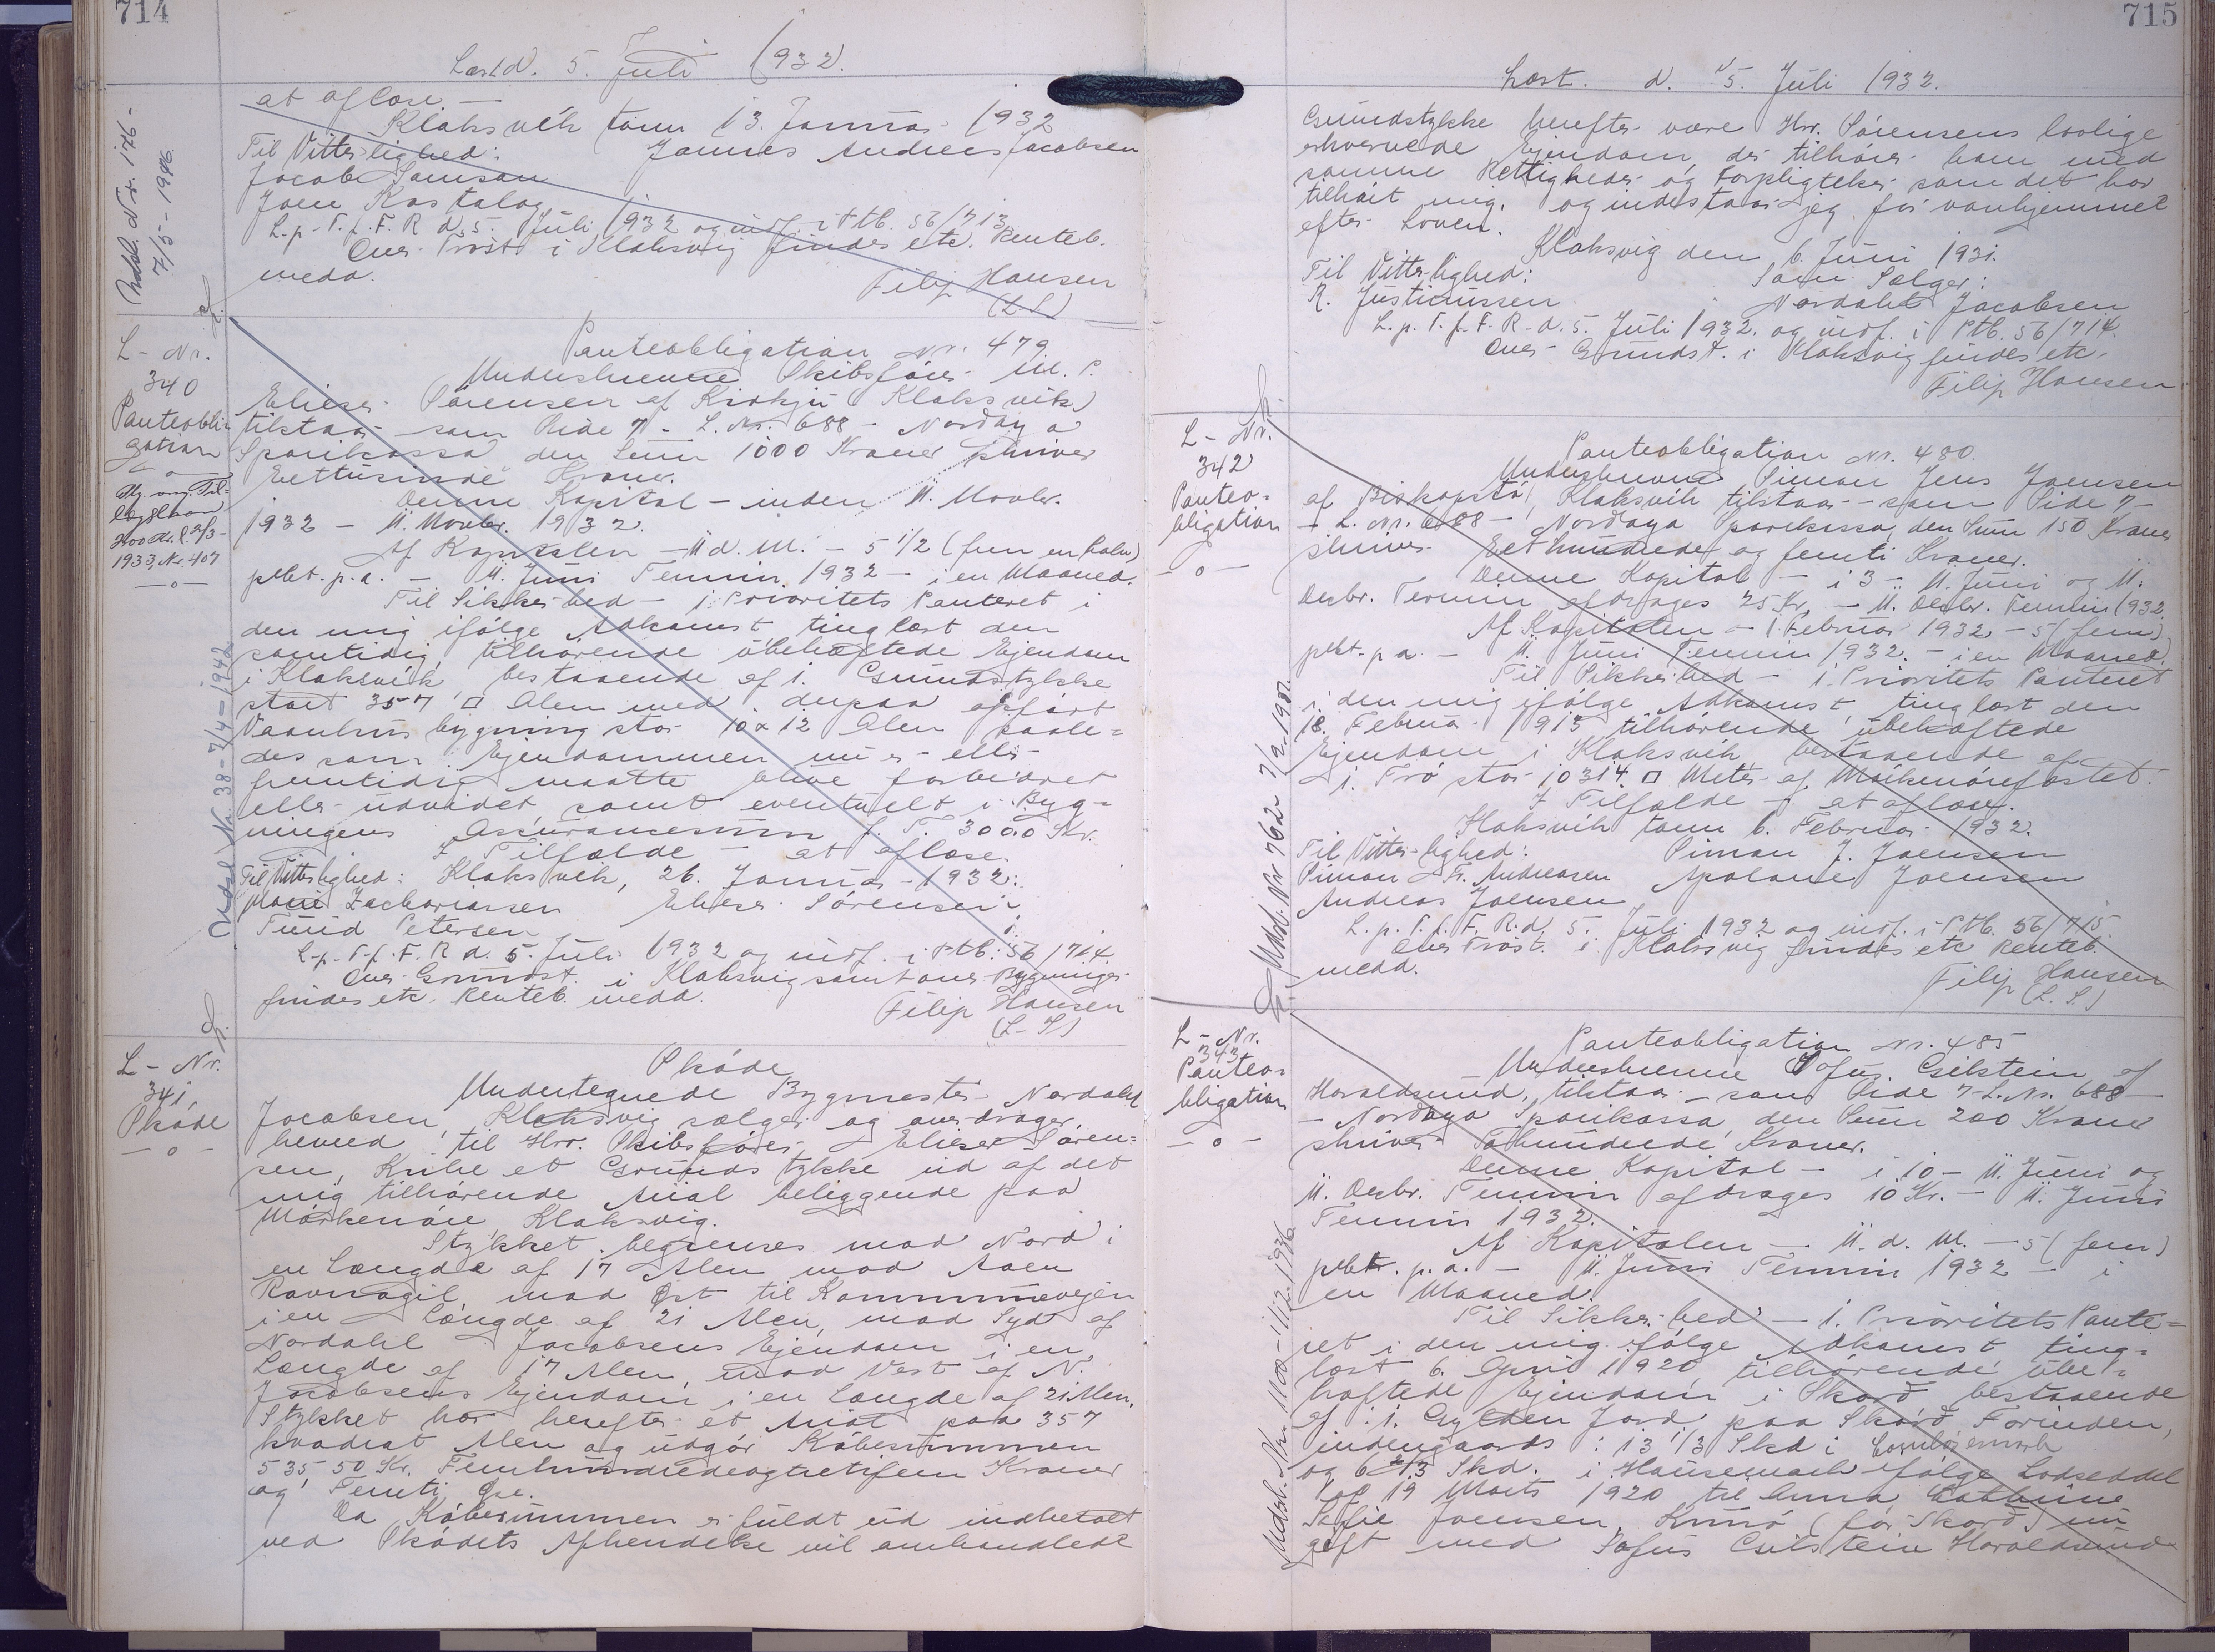 714
Læst d. 5. Juli 1932.
at aflæse. —
Klaksvík tann 13. Januar 1932
Til Vitterlighed: Jannes Andreas Jacobsen
Jacob Samson
Joen Kastalag
L. p. T. f. F. R d. 5. Juli 1932 og indf. i Ptb. 56/713.
Over Trøst i Klaksvig findes etc. Renteb.
medd.
Filip Hansen
(L.S)
Udsl. Nr. 176 -
7/5 - 1946.
L - Nr.
340
Panteobli-
gation
— o —
1933, Nr. 407
— o —
Udsl Nr. 38 - 7/4 - 1942
Panteobligation Nr. 479
Underskrevne Skibsfører M. P.
Elieser Sørensen af Kirkju Klaksvík
tilstaar som Side 7 - L. Nr. 688 - Norðoya
Sparikassa den Sum 1000 Kroner skriver
Eettusinde Kroner.
Denne Kapital — inden 11. Novbr.
1932 — 11. Novbr. 1932.
Af Kapitalen — 11 d. M. — 5 1/2 (fem en halv)
pCt. p. a. — 11. Juni Termin 1932 — i en Maaned.
Til Sikkerhed — 1. Prioritets Panteret i
den mig ifølge Adkomst tinglæst den
samtidig tilhørende ubehæftede Ejendom
i Klaksvík bestaaende af 1. Grundstykke
stort 357 □ Alen med derpaa opført
Vaanhus bygning stor 10 x 12 Alen saale-
des som Ejendommen nu er eller
fremtidig maatte blive forbedret
eller udvidet samt eventuelt i Byg-
ningens Assurancesum f. T. 3000 Kr.
I Tilfælde — at aflæse.
Til Vitterlighed: Klaksvík, 26. Januar 1932.
Marie Zachariasen Elieser Sørensen
Turid Petersen
L. p. T. f. F. R d. 5. Juli 1932 og indf. i Ptb. 56/714.
Over Grundst. i Klaksvig samt over Bygninger
findes etc. Renteb. medd.
Filip Hansen
(L. S)
L - Nr.
341.
Skøde
— o —
Skøde
Undertegnede Bygmester Nordahl
Jacobsen, Klaksvig sælger og overdrager
herved til Hrr. Skibsfører Elieser Søren-
sen, Kirke et Grundstykke ud af det
mig tilhørende Areal beliggende paa
Mørkenøre, Klaksvig.
Stykket begrænses mod Nord i
en Længde af 17 Alen mod Aaen
Ravnagil, mod Øst til Kommunevejen
i en Længde af 21 Alen, mod Syd af
Nordahl Jacobsens Ejendom i en
Længde af 17 Alen, mod Vest af N.
Jacobsens Ejendom i en Længde af 21 Alen.
Stykket har herefter et Areal paa 357
kvadrat Alen og udgør Købesummen
535 50 Kr. Femhundredeogtretifem Kroner
og Femti Øre.
Da Købesummen er fuldt ud indbetalt
ved Skødets Afhendelse vil omhandlede
715
Læst. d. 5. Juli 1932.
Grundstykke herefter være Hrr. Sørensens lovlige
erhvervede Ejendom, der tilhører ham med
samme Rettigheder og Forpligtelser som det har
tilhørt mig, og indestaar jeg for vanhjemmel
efter Loven.
Klaksvig den 6. Juni 1931.
Til Vitterlighed: Som Sælger:
R. Justinussen Nordahl Jacobsen
L. p. T. f. F. R. d. 5. Juli 1932. og indf. i Ptb. 56/714.
Over Grundst. i Klaksvig findes etc.
Filip Hansen
L - Nr.
342
Panteo-
bligation
— o —
Udsl. Nr 762 - 7/2 1951.
Panteobligation Nr. 480.
Underskrevne Simon Jens Joensen
af Biskopstø, Klaksvík tilstaar — som Side 7 -
- L. Nr. 688 — Norðoya sparikassa, den Sum 150 Kroner
skriver Eet hundrede og femti Kroner.
Denne Kapital — i 3 — 11. Juni og 11.
Decbr. Termin afdrages 25 Kr. — 11. Decbr. Termin 1932.
Af Kapitalen — 1 Februar 1932 — 5 (fem)
pCt. p a. — 11. Juni Termin 1932. — i en Maaned.
Til Sikkerhed — 1. Prioritets Panteret
i den mig ifølge Adkomst tinglæst den
18. Februar 1915 tilhørende ubehæftede
Ejendom i Klaksvík bestaaende af
1. Trø stor 10314 □ Meter af Mørkenørefæstet.
I Tilfælde — at aflæse.
Klaksvík tann 6. Februar 1932.
Til Vitterlighed: Simon J. Joensen
Simon Fr. Andreasen Apolone Joensen
Andreas Joensen
L. p. T. f. F. R. d. 5. Juli 1932 og indf. i Ptb. 56/715.
Over Trøst. i Klaksvig findes etc Renteb.
medd.
Filip Hansen
(L. S.)
L - Nr.
343
Panteo-
bligation
— o —
Udsl. Nr. 1100 - 1/12 1936.
Panteobligation Nr. 485
Underskrevne Sofus Gilstein af
Haraldssund, tilstaar — som Side 7 - L. Nr. 688 —
- Norðoya Sparikassa, den Sum 200 Kroner
skriver Tohundrede Kroner.
Denne Kapital — i 10 — 11. Juni og
11. Decbr. Termin afdrages 10 Kr. — 11. Juni
Termin 1932.
Af Kapitalen — 11. d. M. — 5 (fem)
pCt. p. a. — 11. Juni Termin 1932 — i
en Maaned.
Til Sikkerhed — 1. Prioritets Pante-
ret i den mig ifølge Adkomst ting-
læst 6. April 1920 tilhørende ube-
hæftede Ejendom i Skarð bestaaende
af: 1. Gylden Jord paa Skarð Forinden,
indengaards: 13 1/3 Skd i
og 6 2/3 Skd. i Hausemark ifølge Lodseddel
19 Marts 1920 til Anna Cathrine
Sofie Joensen, Kunø (før Skarð) nu
gift med Sofus Gilstein Haraldssund